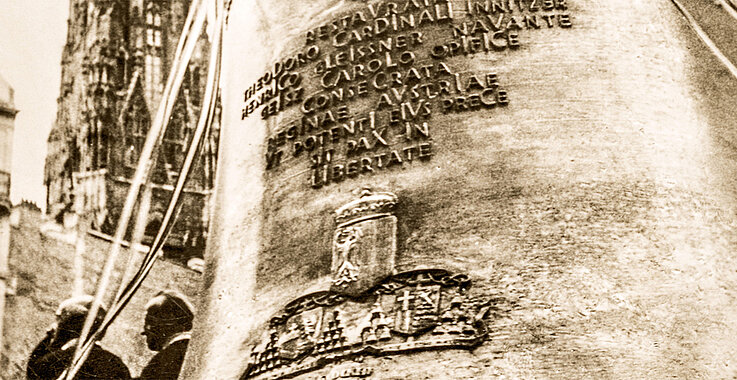 RESTAVRA
THEODORO CARDINALI INNITZER
HENRICO GLEISSNER NAVANTE
GEISZ CAROLO OPIFICE
CONSECRATA
REGINAE AVSTRIAE
VT POTENTI EIVS PRECE
SIT PAX IN
LIBERTATE